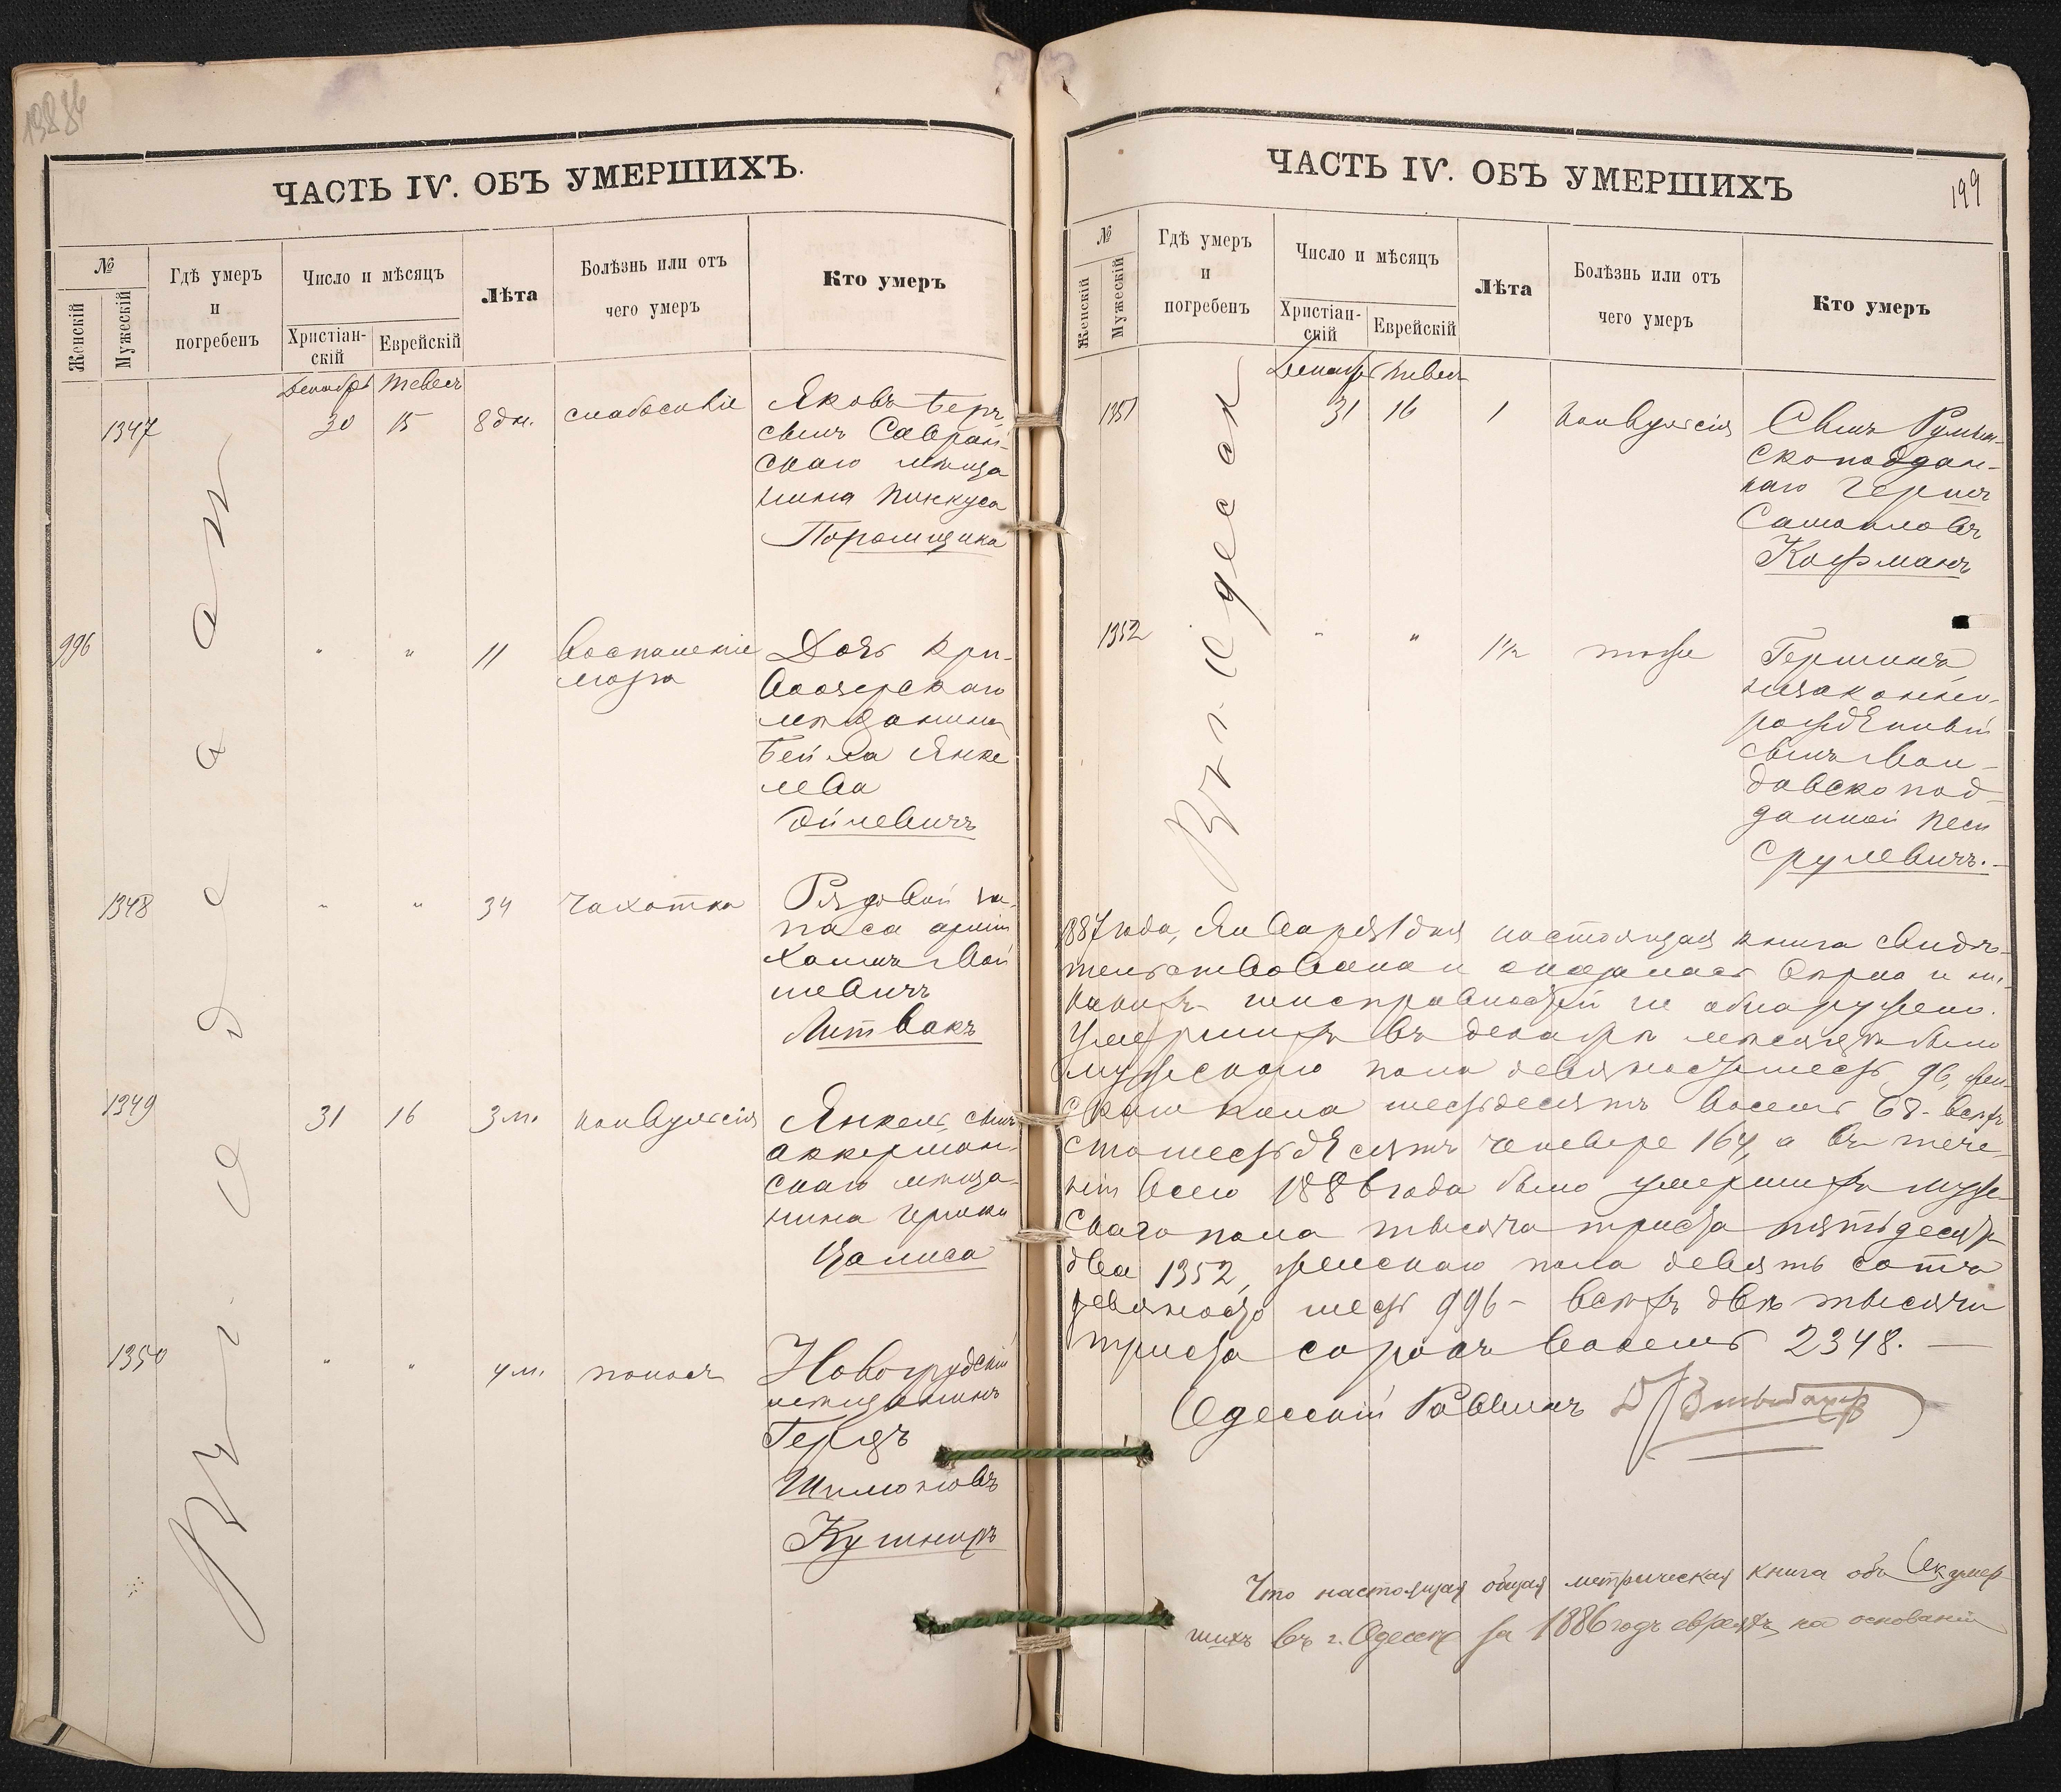 ЧАСТЬ IV. ОБЪ УМЕРШИХЪ.
№
Женскій
Мужескій
Гдѣ умеръ
и
погребенъ
Число и мѣсяцъ
Христіан-
скій
Еврейскій
Лѣта
Болѣзнь или отъ
чего умеръ
Кто умеръ
Въ г. Одессѣ
Декабрь Тевесъ
1347
30
15
8 дн.
слабосиліе
Яковъ Беръ
сынъ Савран-
скаго мѣща
нина Пинкуса
Поромщика
996
"
"
11
воспаленіе
мозга
Дочь Кри-
воозерскаго
мѣщанина
Бейла Янке
лева
Ойлевичъ
1348
"
"
34
чахотка
Рядовой за-
паса арміи
Хаимъ Мой
шевичъ
Литвакъ
1349
31
16
3 м.
конвульсія
Янкель, сынъ
аккерман-
скаго мѣща-
нина Гершка
Цалиса
1350
"
"
4 м.
поносъ
Новогрудскій
мѣщанинъ
Герцъ
Шимоновъ
Кушниръ
ЧАСТЬ IV. ОБЪ УМЕРШИХЪ
199
№
Женскій
Мужескій
Гдѣ умеръ
и
погребенъ
Число и мѣсяцъ
Христіан-
скій
Еврейскій
Лѣта
Болѣзнь или отъ
чего умеръ
Кто умеръ
Въ г. Одессѣ
Декабрь Тевесъ
1351
31
16
1
конвульсія
Сынъ Румын-
скоподдан-
наго Гершъ
Самойловъ
Кофманъ
1352
"
"
1½
тоже
Гершикъ
незаконно-
рожденный
сынъ Мол-
давскопод-
данной Песи
Срулевичъ.-
1887 года, Января 1 дня настоящая книга свидѣ-
тельствована и оказалась вѣрна и ни-
какихъ неисправностей не обнаружено.
Умершихъ въ декабрѣ мѣсяцѣ было
мужескаго пола девяностошесть 96, жен-
скаго пола шестьдесятъ восемь 68 - всѣхъ
сто шестьдесятъ четыре 164, а въ тече-
ніи всего 1886 года было умершихъ муже-
скаго пола тысяча триста пятьдесятъ
два 1352, женскаго пола девять сотъ
девяносто шесть 996 - всѣхъ двѣ тысячи
триста сорокъ восемь 2348. —
Одесскій Раввинъ
Что настоящая общая метрическая книга объ умер
шихъ въ г. Одессѣ за 1886 годъ евреяхъ на основаніи